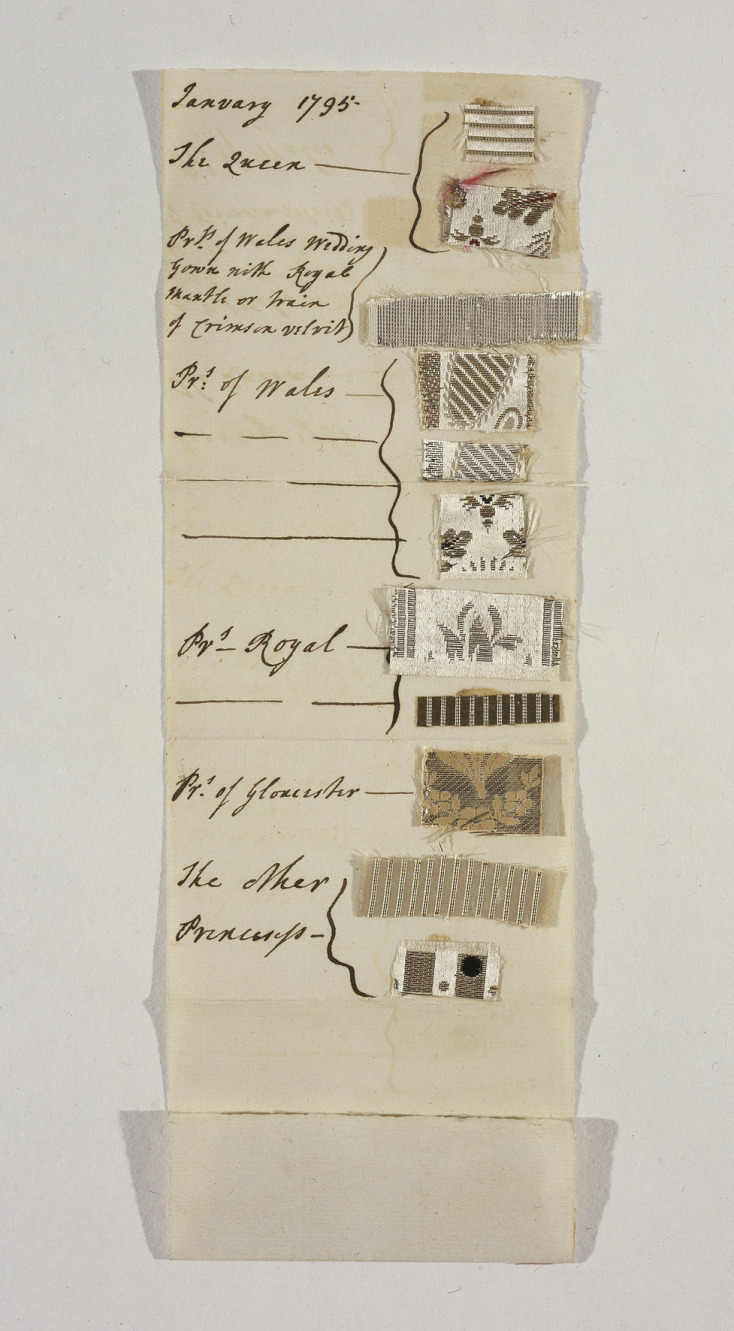 January 1795-
The Queen
Prss of Wales Wedding
Gown with Royal
Mantle or train
of Crimson velvit
Prs of Wales
Prs Royal
Prs of Gloucester
The other
Princess-